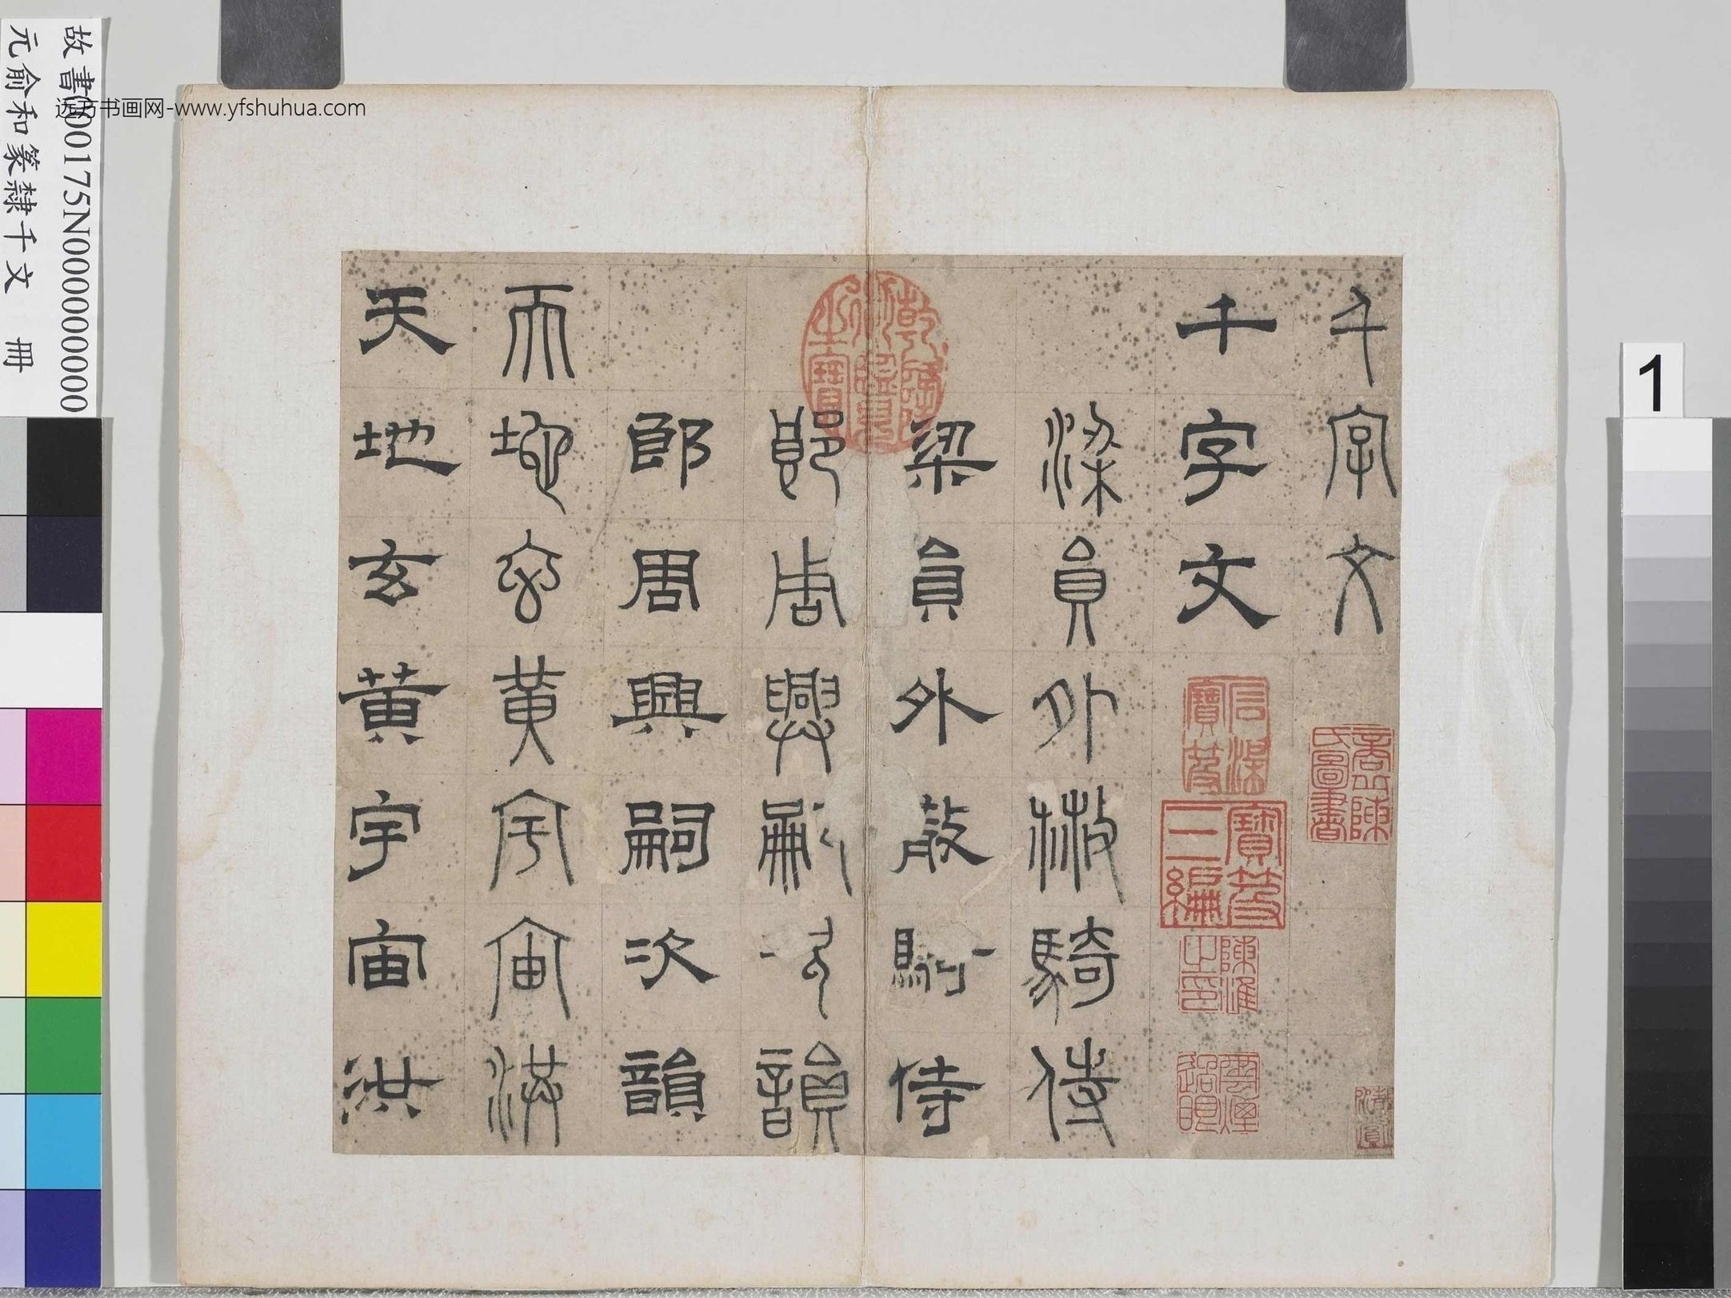 故書000175N000000000
元俞和篆隸千文 冊
远方书画网-www.yfshuhua.com
1
千字文
千字文
梁員外散騎侍
梁員外散騎侍
郎周興嗣次韻
郎周興嗣次韻
天地玄黃宇宙洪
天地玄黃宇宙洪
乾隆御覽之寶
石渠寶笈
寶笈三編
陳淮之印